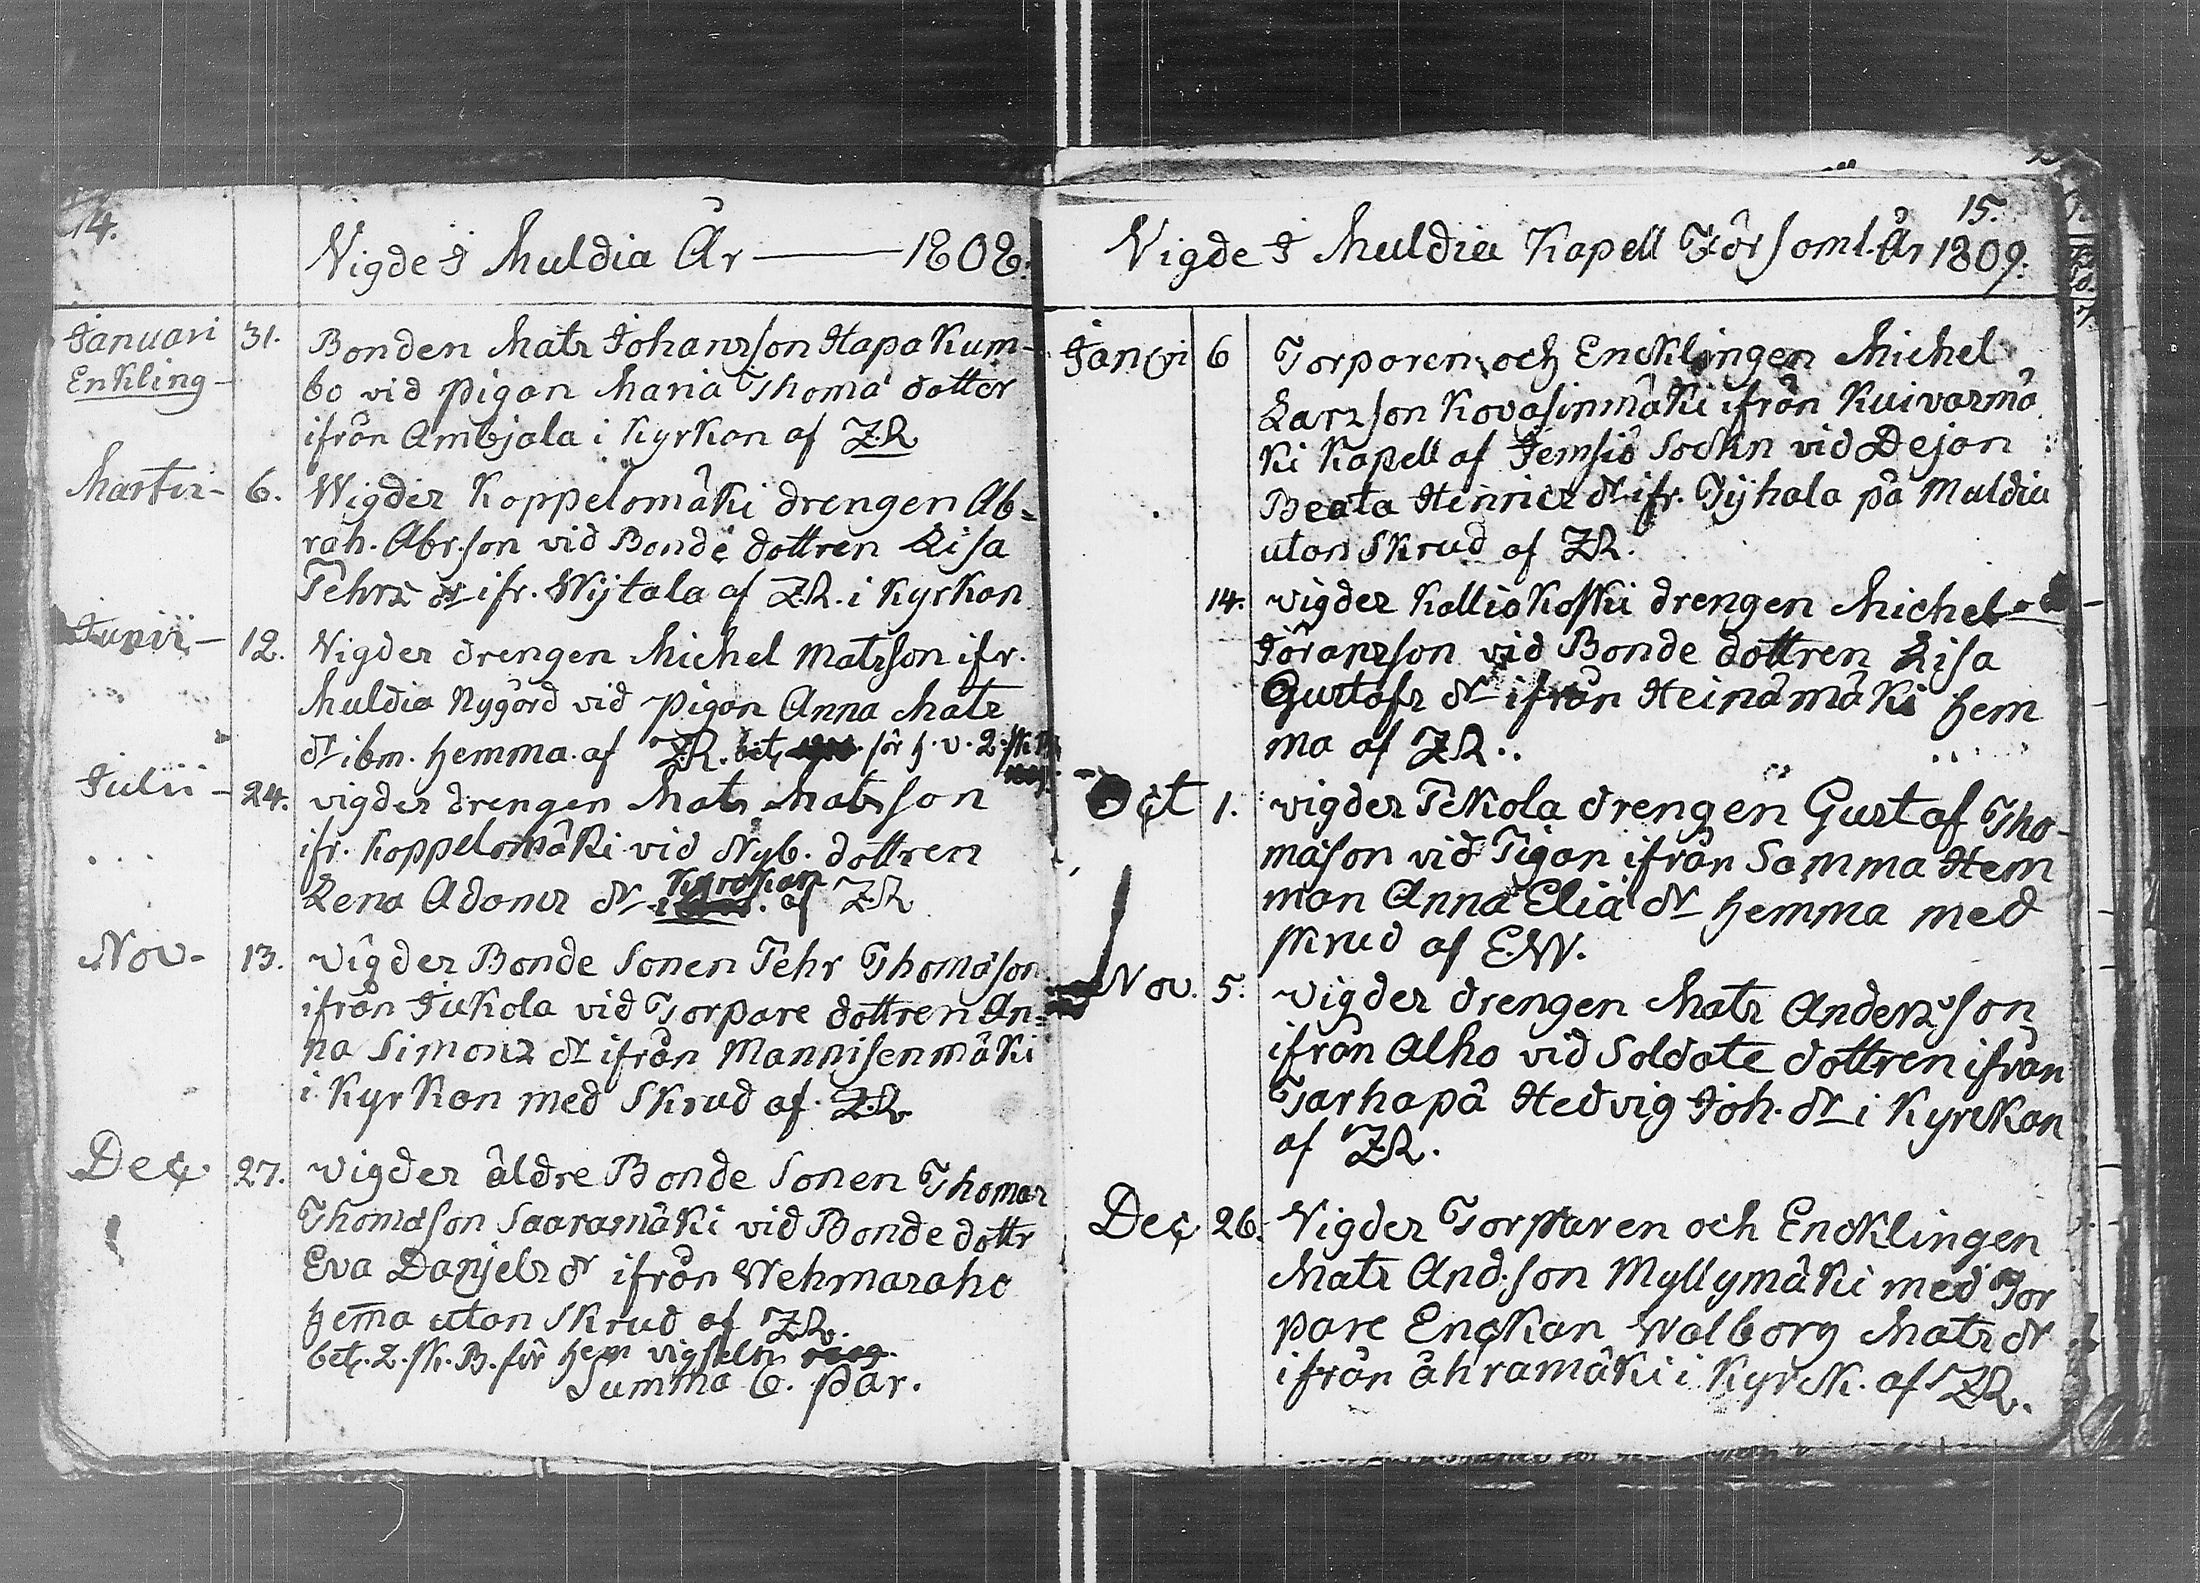 14.
Vigde I Muldia År — 1808.
Januari 31. Bonden Mats Johansson Hapa Kum-
Enkling - bo vid pigan Maria Thoma dotter
ifrån Ambjala i Kyrkan af Z.R
Martii - 6. Wigdes Koppelomäki drengen Ab=
rah. Abr.son vid Bonde dottren Lisa
Pehrs dr ifr. Wijtala af Z.R. i Kyrkan
Junii - 12. Vigdes drengen Michel Matsson ifr.
Muldia Nygård vid pigan Anna Mats
dr ibm. hemma. af Z.R. bet. för h. v. 2. sk.
Julii - 24. vigdes drengen Mats Matsson
ifr. Koppelomäki vid Nyb. dottren
Lena Adams dr Kyrckan af Z.R
Nov - 13. vigdes Bonde Sonen Pehr Thomason
ifrån Jukola vid Torpare dottren An=
na Simons dr ifrån Mannisenmäki
i Kyrkan med Skrud af Z.R.
Dec 27. vigdes äldre Bonde Sonen Thomas
Thomason Saaramäki vid Bonde dottr
Eva Danjels dr ifrån Wehmasaho
hema utan Skrud af Z.R.
bet. 2. sk. B. för hem vigseln
Summa 6. par.
15.
Vigde I Muldia Kapell Förs oml. År 1809.
Januri 6 Torparen och Encklingen Michel
Larsson Kovasinmäki ifrån Kuivasmä
ki Kapell af Jemsiö Sockn vid Dejan
Beata Henrics dr ifr. Tÿhala på Muldia
utan Skrud af Z.R.
14. vigdes Kalliokoski drengen Michel
Jöransson vid Bonde dottren Lisa
Gustafs dr ifrån Heinämäki hem
ma af Z.R.
Oct 1. vigdes Pekola drengen Gustaf Tho-
mason vid Pigan ifrån Samma Hem
man Anna Elia dr hemma med
skrud af E.W.
Nov. 5. vigdes drengen Mats Andersson
ifrån Alho vid Soldate dottren ifrån
Tarhapä Hedvig Joh. dr i Kyrckan
af Z.R.
Dec 26. Vigdes Torparen och Encklingen
Mats And.son Myllymäki med Tor
pare Enckan Walborg Mats dr
ifrån ähramäki i Kyrck. af Z.R.